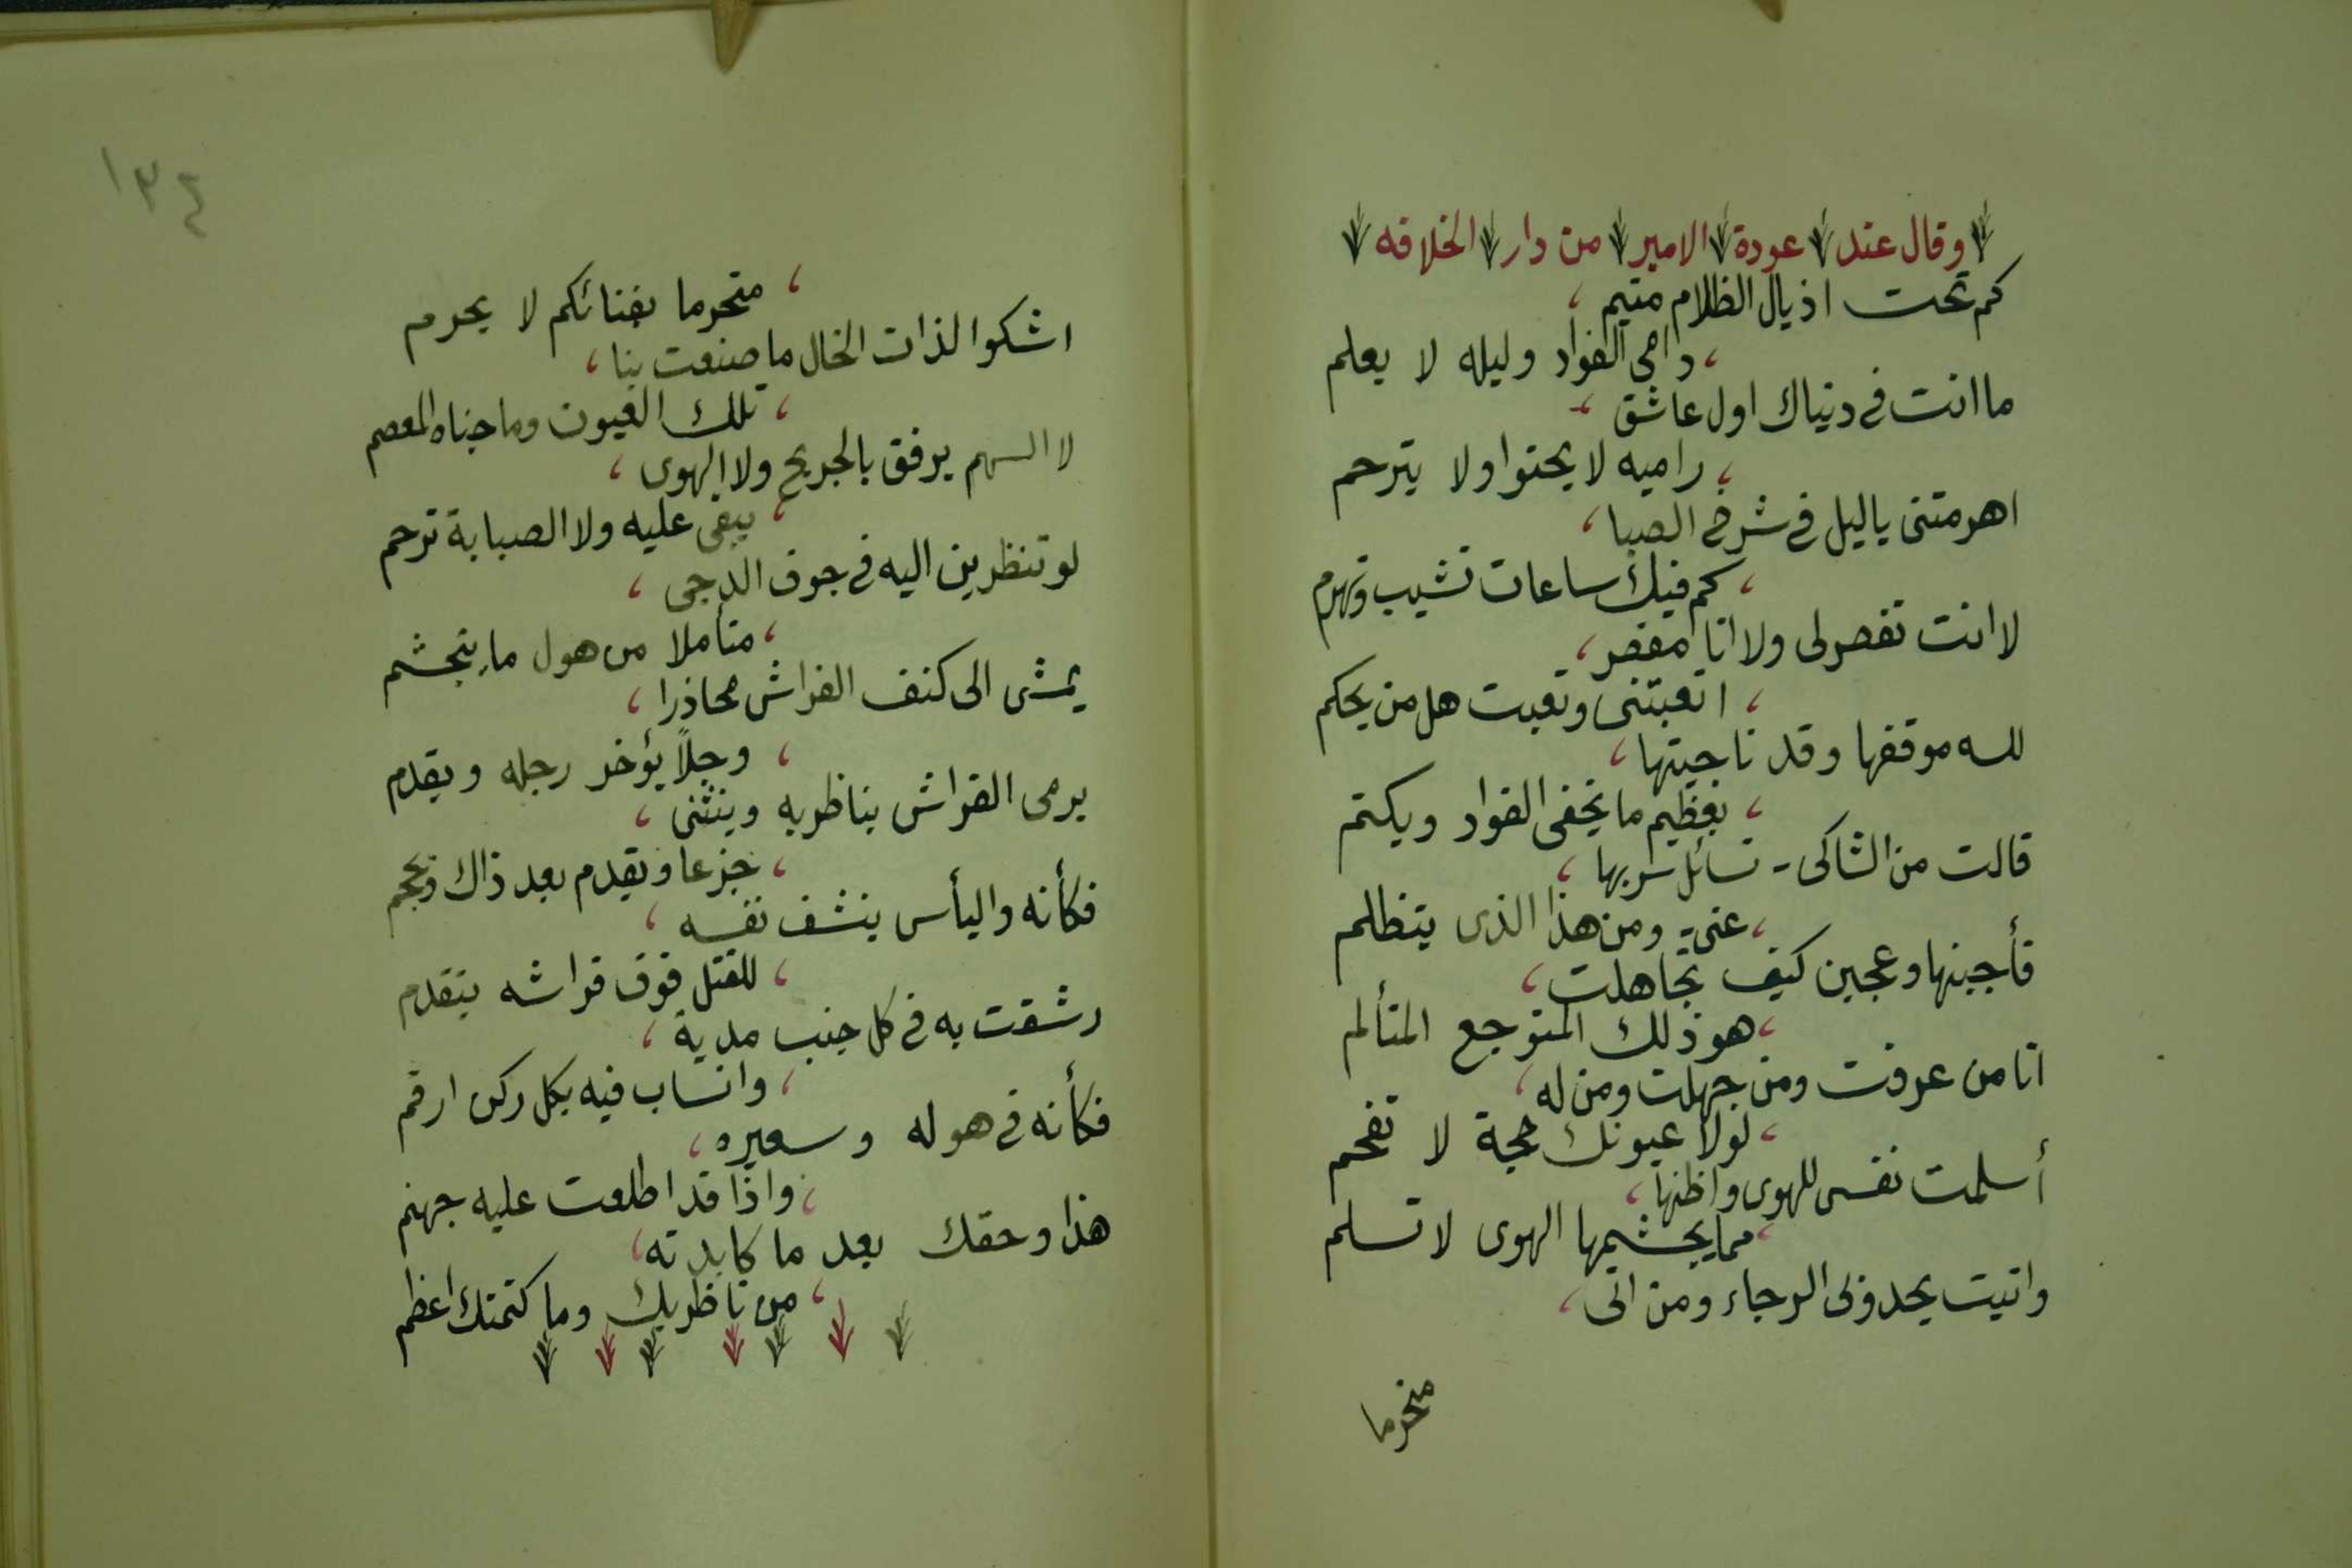 وقال عند عودة الامير من دار الخلافه
كم تحت اذيال الظلام متيم
دامى الفواد وليله لا يعلم
ما انت فى دنياك اول عاشق
راميه لا يحنوا ولا يترحم
اهرمتنى ياليل فى شرخ الصبا
كم فيك ساعات تشيب وتهرم
لا انت تقصر لى ولا انا مقصر
اتعبتنى وتعبت هل من يحكم
لله موقفها وقد ناجيتها
بعظيم ما يخفى الفواد ويكتم
قالت من الشاكى - تسائل سربها
عنى - ومن هذا الذى يتظلم
فأجبنها وعجبن كيف تجاهلت
هو ذلك المتوجع المتألم
انا من عرفت ومن جهلت ومن له
لولا عيونك حجة لا تفحم
أسلمت نفسى للهوى واظنها
مما يجشمها الهوى لا تسلم
واتيت يحدونى الرجاء ومن اتى
متحرما
١٣٤
متحرما بفنائكم لا يحرم
اشكوا لذات الخال ما صنعت بنا
تلك العيون وما جناه المعصم
لا السهم يرفق بالجريح ولا الهوى
يبقى عليه ولا الصبابة ترحم
لو تنظرين اليه فى جوف الدجى
متأملا من هول ما يتجشم
يمشى الى كنف الفراش محاذرا
وجلاً يؤخر رجله ويقدم
يرمى الفراش بناظريه وينثنى
جزعا ويقدم بعد ذاك ويحجم
فكأنه واليأس ينشف نفسه
للقتل فوق فراشه يتقدم
رشقت به فى كل جنب مدية
وانساب فيه بكل ركن ارقم
فكأنه فى هوله وسعيره
واذا قد اطلعت عليه جهنم
هذا وحقك بعد ما كابدته
من ناظريك وما كتمتك اعظم